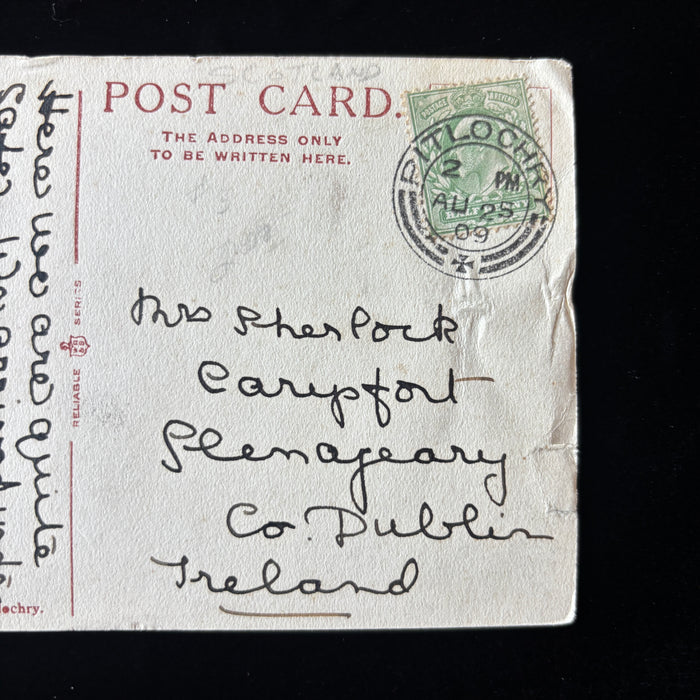 SCOTLAND
POST CARD.
THE ADDRESS ONLY
TO BE WRITTEN HERE.
POSTAGE REVENUE
PITLOCHRY
2 PM
AU 25
09
Mrs Sherlock
Carysfort
Glenageary
Co. Dublin
Ireland
Here we are quite
Safe.
RELIABLE SERIES
lochry.